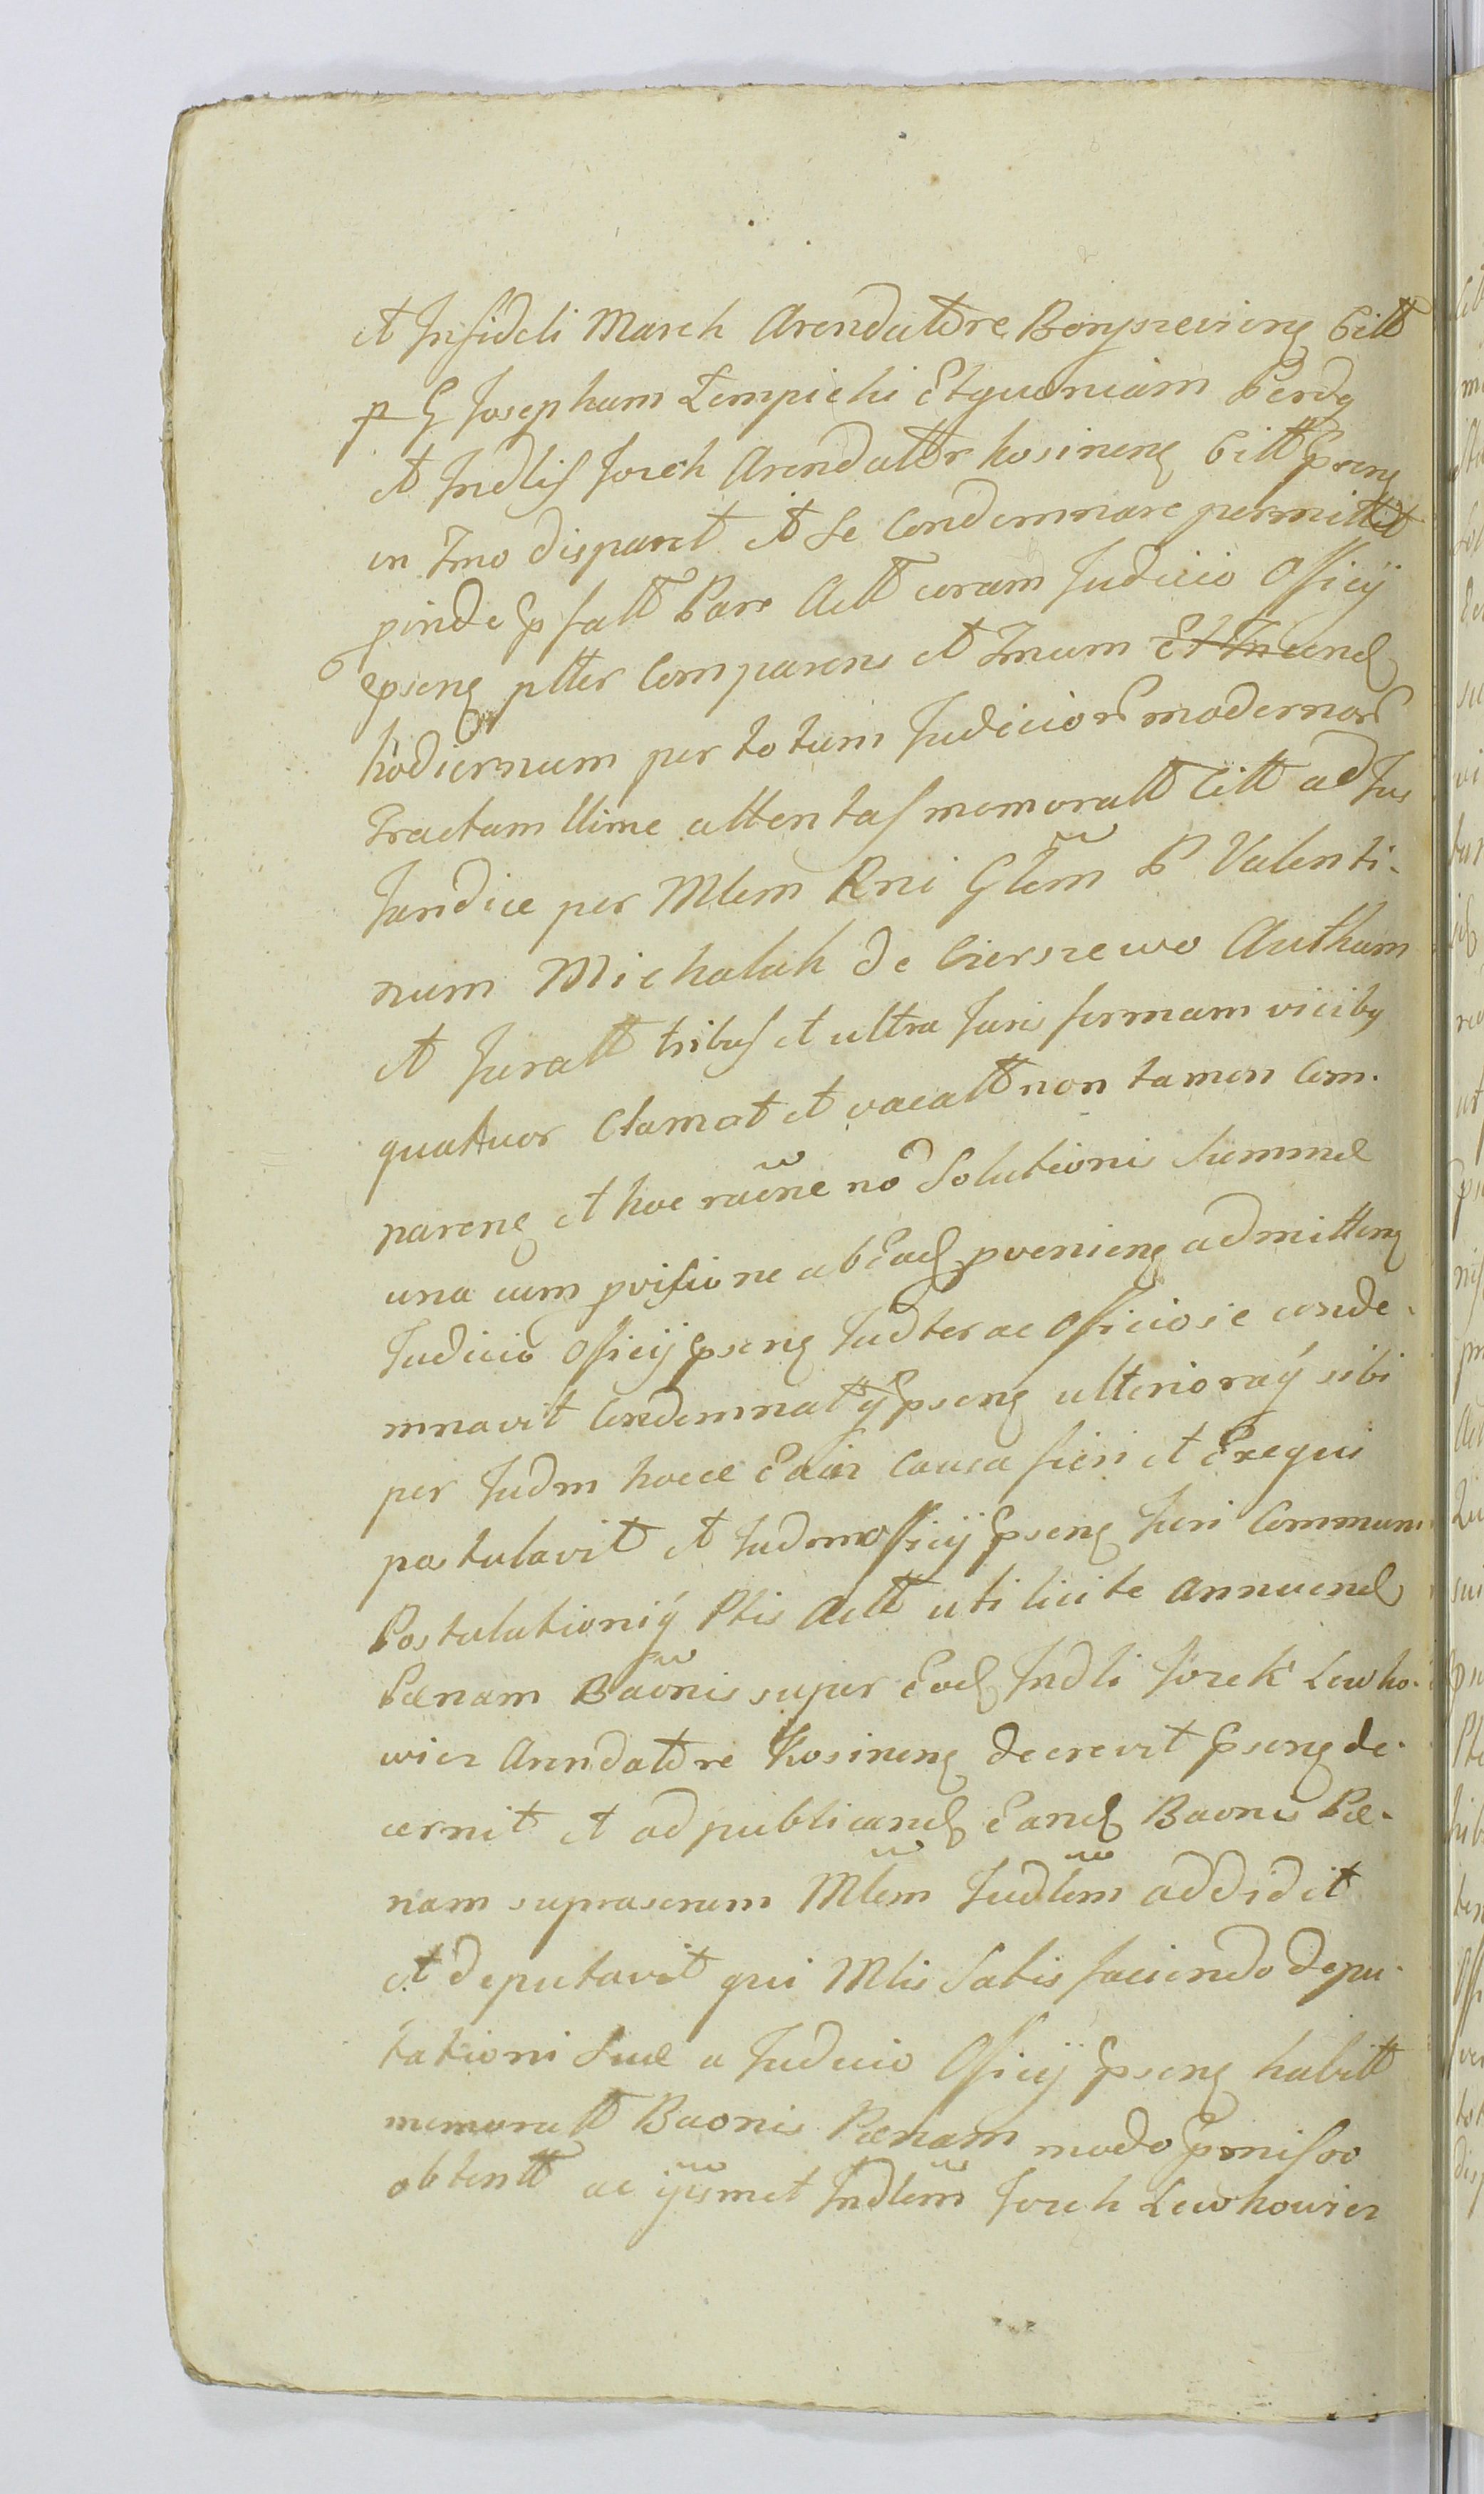 et Infideli March Arendatore Bonprzeviens Citt
p G Josephum Lempichi Etquoniam Perdq
et Indlis Jorek Arendattr kosinens Citt Psens
in Tmo disparet et Se Condemnare permittit
pinde Psfatt Pars Actt coram Judicio Officij
Psens ptter Comparens et Tmum Et Tn end
hodiernum per totum Judicior modernor
Tractum llime attentas memoratt Citt ad Jus
Jandice per Mlem Rni Glem P Valenti-
num Michalak de Cierszewo Authum
et Juratt tribus et ultra Juris formam vicibq
quatuor Clamat et vocatt non tamen Com-
parens et hoc raōne nō Solutionis Summæ
una cum pvisione ab Ead pveniens admittens
Judiciō Officij Psens Judter ac Officiose conde-
mnavit Condemnat Psens ulterioraq sibi
per Judm hocce Eair Causa fieri et Exequi
postulavit et Judmo Officij Psens Juri Communi
Postulationiq Ptis Actt uti licite annuend
Pænam Baōnis super Eod Indli Jorek Lewko-
wicz Arendatōre Kosinens decrevit Psens de-
cernit et ad publicand Eand Baonis Pæ-
nam suprascrum Mlem Judlem addidit
et deputavit qui Mlis Satisfaciendo depu-
tationi Suæ a Judicio Officij Psens habitt
memoratt Baonis Pænam modo Pmisso
obtentt ac ijsmet Indlem Jorek Lewkowicz